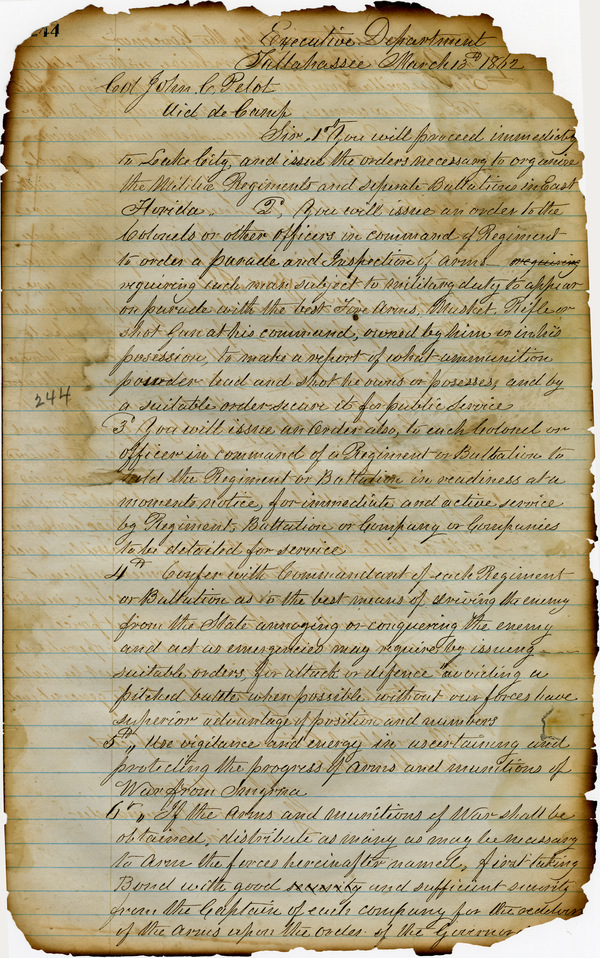 244
Executive Department
Tallahassee March 13th 1862
Col John C. Pelot
Aid de Camp
Sir, 1st You will proceed immediately
to Lake City, and issue the orders necessary to organize
the Militia Regiments and seperate Battations in East
Florida. 2d, You will issue an order to the
Colonels or other officers in command of Regiment
to order a parade and Inspection of arms requiring
requiring each man subject to military duty to appear
on parade with the best Fire Arms, Musket, Rifle or
shot Gun at his command, owned by him or in his
posession, to make a report of what ammunition
powder lead and shot he owns or posesses, and by
a suitable order secure it for public service
244
3d You will issue an Order also, to each Colonel or
officer in command of a Regiment or Battation to
hold the Regiment or Battation in readiness at a
moments notice, for immediate and active service
by Regiment, Battation or Company or Companies
to be detailed for service
4th Confer with Commandant of each Regiment
or Battation as to the best means of driving the enemy
from the State annoying or conquering the enemy
and act as emergencies may require, by issuing
suitable orders, for attack or defence "avoiding a
pitched battle when possible without our forces have
superior advantage of position and numbers
5th " Use vigilance and energy in ascertaining and
protecting the progress of arms and munitions of
War from Smyrna
6th " If the Arms and munitions of War shall be
obtained, distribute as many as may be necessary
to Arm the forces hereinafter named, first taking
Bond with good and sufficient security
from the Captain of each company for the
of the Arms upon the order of the Governor